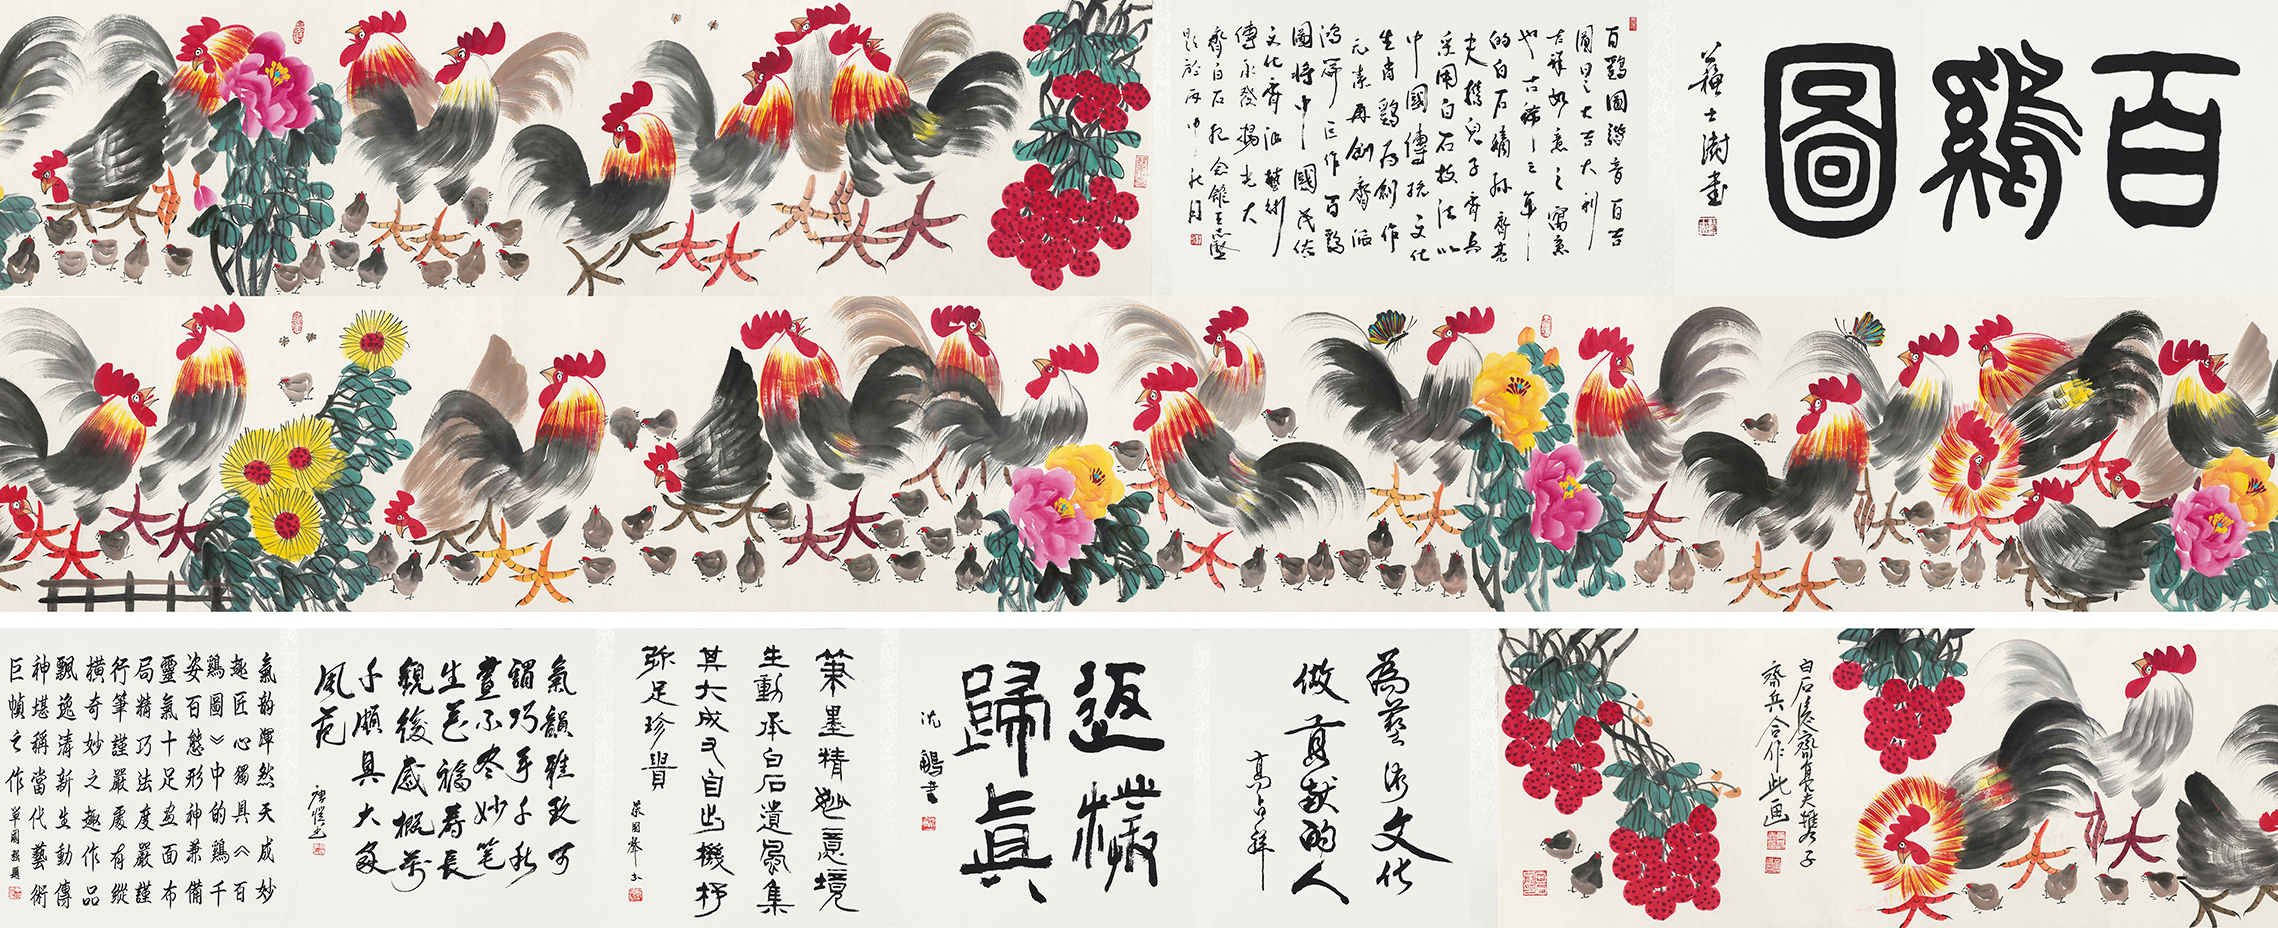 百鷄圖
蘇士澍書
百鷄圖諧音百吉
圖曰之大吉大利
吉祥如意之寓意
也古稀之年
的白石嫡孫齊亮
夫携兒子齊兵
采用白石技法以
中國傳統文化
生肖鷄为創作
元素再創齊派
鴻篇巨作百鷄
圖将中國民俗
文化齊派藝術
傳承發揚光大
齊白石纪念館王志堅
題於丙申秋月
白石後裔齊亮夫携子
齊兵合作此画
為藝術文化
做貢獻的人
高占祥
返樸
歸真
沈鵬書
筆墨精妙意境
生動承白石遺風集
其大成又自出機杼
弥足珍貴
氣韻雅致可
謂巧手千秋
畫不冬妙笔
生花福寿長
觀後感概萬
千頗具大家
風范
氣韵渾然天成妙
趣匠心獨具《百
鷄圖》中的鷄千
姿百態形神兼備
靈氣十足画面布
局精巧法度嚴謹
行筆謹嚴處有縱
橫奇妙之趣作品
飄逸清新生動傳
神堪稱當代藝術
巨幀之作
單國強題